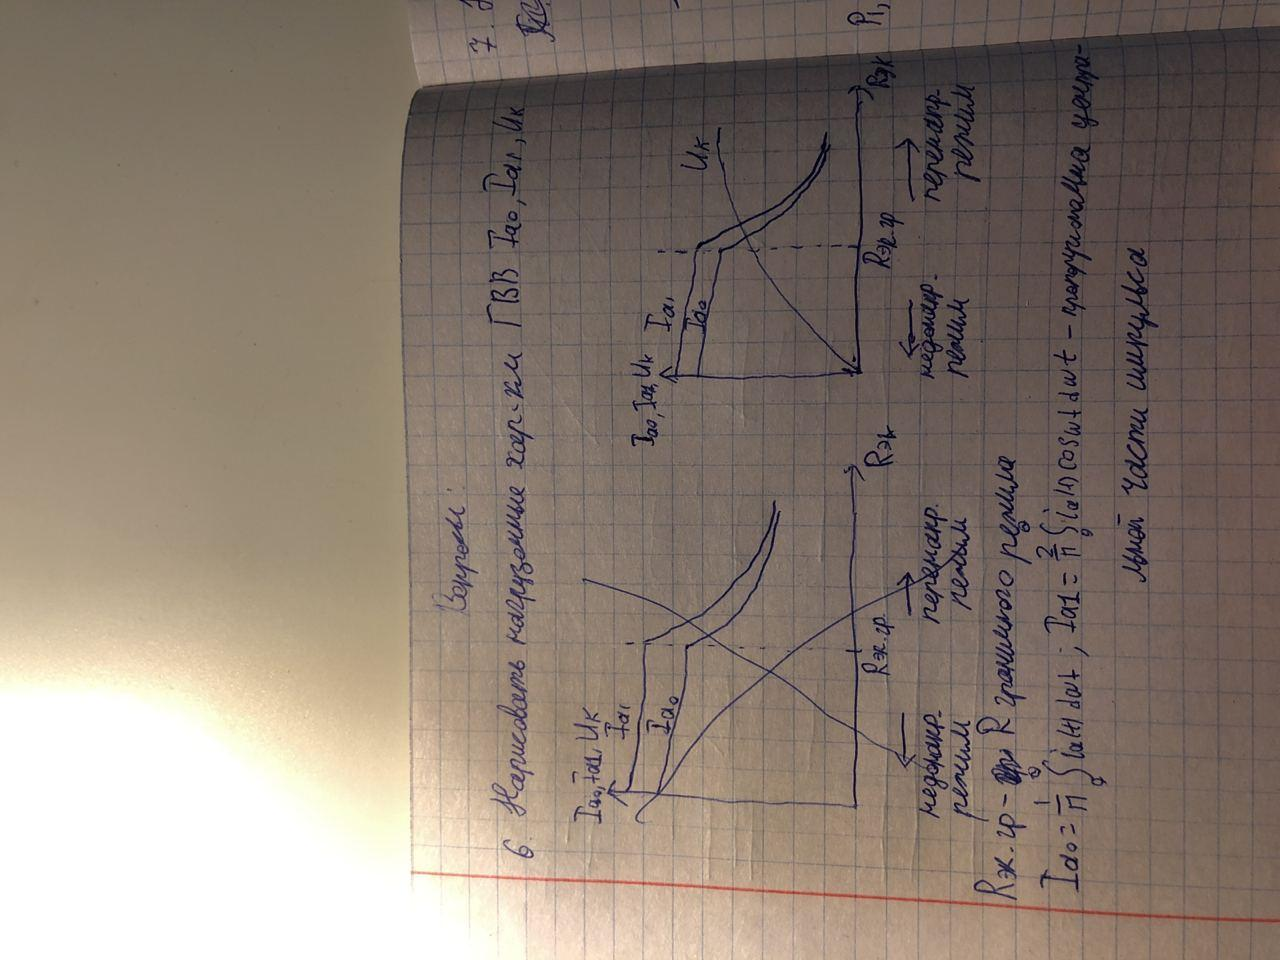 Вопросы:
6. Нарисовать нагрузочные хар-км ГВВ Iа0, Iа1, Uк
Iа0, Iа1, Uк
Iа1
Iа0
Rэк.гр
Rэк
недонапр.
режим
перенапр.
режим
Iа0, Iа1, Uк
Iа1
Iа0
Uк
Rэк.гр
Rэк
недонапр.
режим
перенапр.
режим
Rэк.гр - R граничного режима
Iа0 = 1/π ∫ iа(t) dωt ; Iа1 = 2/π ∫ iа(t) cosωt dωt -
ьной части импульса
7.
P1,